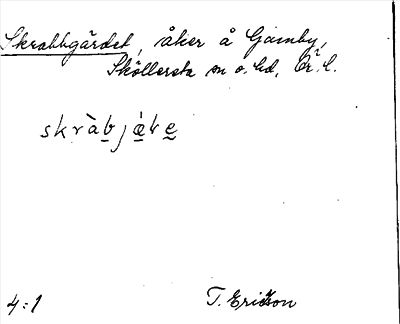 Skrabbgärdet, åker å Gamby,
Sköllersta sn o. hd, Ör. l.
skràb̲jæ̲̀ʈe̲
4:1 T. Ericsson